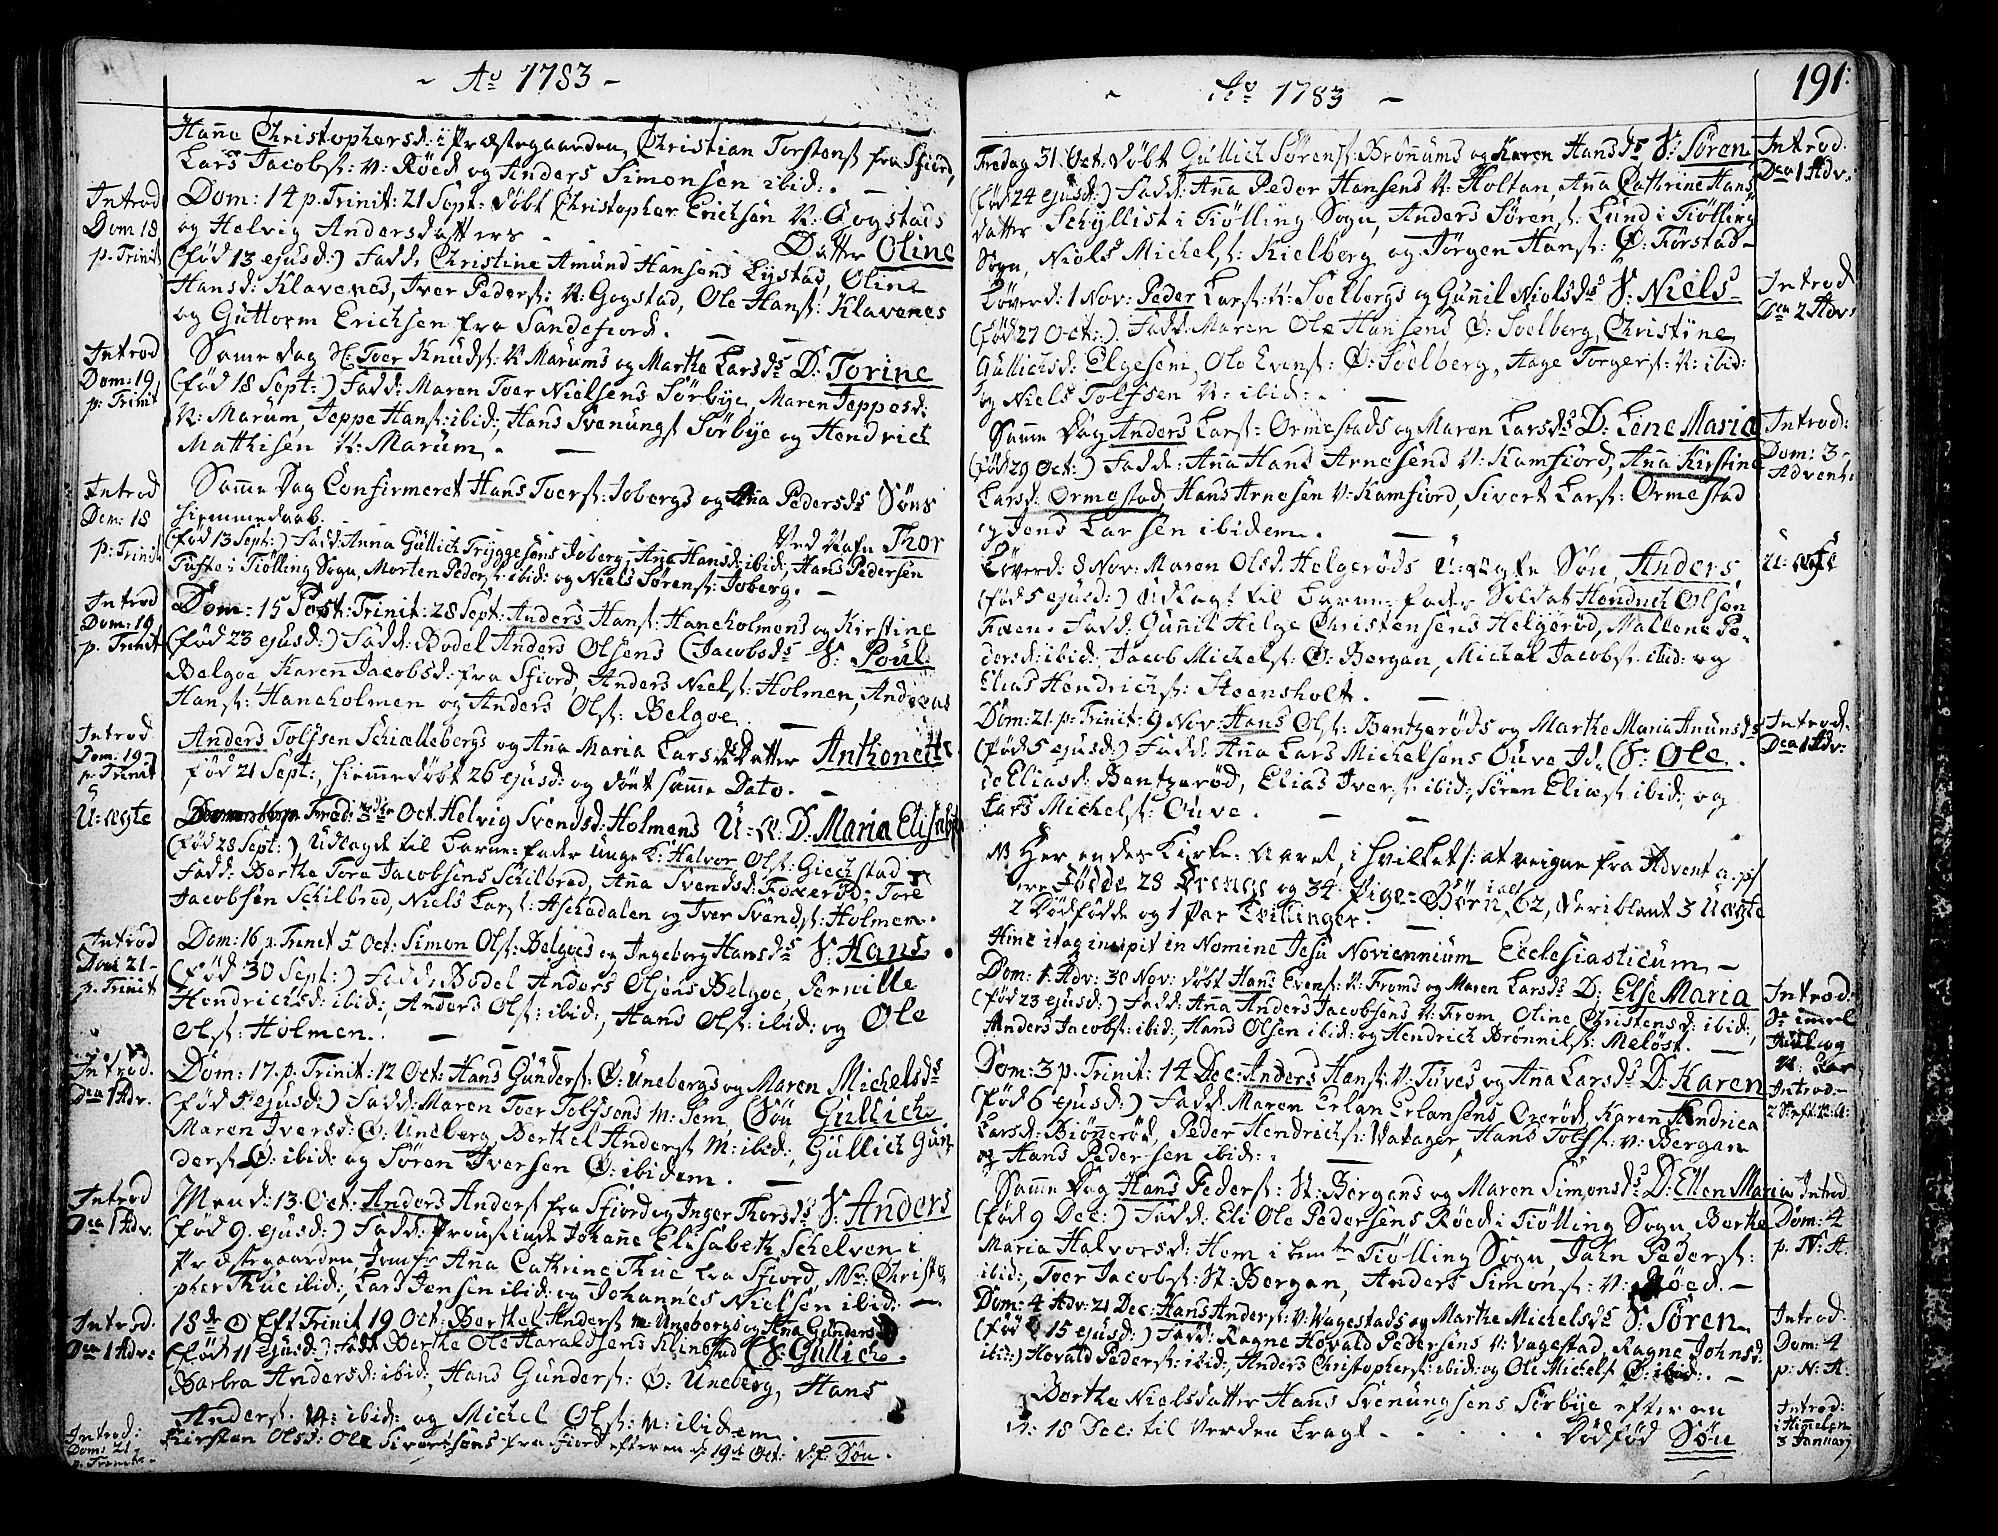 - Ao 1783 -
Hanna Christophersd: i Præstegaarden, Christian Torstens: fra Sfiord,
Lars Jacobs: N: Röed og Anders Simonsen ibid: -
Introd
Dom 18
p. Trinit
Dom: 14 p. Trinit: 21 Sept: döbt Christopher Erichsen N: Gogstads
og Helvig Andersdatters Datter Oline
(fød 13 ejusd:) Fadd: Christine Amund Hansens Lystad, Oline
Hansd: Klavenes, Iver Peders: N: Gogstad, Ole Hans: Klavenes
og Guttorm Erichsen fra Sandefiord. -
Introd
Dom: 19
p: Trinit
Samme dag H: Toer Knuds: N: Marums og Marthe Larsds D: Torine
(fød 18 Sept:) Fadd: Maren Toer Nielsens Sörbye, Maren Jeppesd:
N: Marum, Jeppe Hans: ibid:, Hans Svenungs: Sörbye og Hendrich
Mathisen N: Marum. -
Introd
Dom: 18
p: Trinit
Samme Dag Confirmeret Hans Toers: Jobergs og Ana Pedersds Söns
hiemmedaab. Ved Nafn Thor
(fød 13 Sept:) Fadd: Anna Gullich Tryggesens Joberg, Ana Hansd: ibid:, Hans Pedersen
Tufte i Tiölling Sogn, Morten Peders: ibid: og Niels Sörens: Joberg. -
Introd
Dom: 19
p. Trinit
Dom: 15 Post: Trinit: 28 Sept: Anders Hans: Haneholmens og Kirstine
(fød 23 ejusd:) Fadd: Bodel Anders Olsens (Jacobsds S: Poul.
Belgoe Karen Jacobsd: fra Sfiord, Anders Niels: Holmen, Andreas
Hans: Haneholmen og Anders Ols: Belgoe. -
Introd
Dom: 19
p. Trinit
Anders Tolfsen Schiællebergs og Ana Maria Larsds Datter Anthonette
fød 21 Sept:, hiemmedöbt 26 ejusd: og döet samme Dato. -
U: ægte
Fred: 3die Oct. Helvig Svendsd: Holmens U: æ. D: Maria Elisabeth
(fød 28 Sept:) Udlagde til Barne-fader Unge K: Halvor Ols: Giechstad
Fadd: Berthe Tore Jacobsens Schilbred, Ana Svendsd: Foxeröd, Tore
Jacobsen Schilbred, Niels Lars: Aschedalen og Iver Svends: Holmen.
Introd
Dom 21
p. Trinit
Dom: 16 p. Trinit 5 Oct: Simon Ols: Belgoes og Ingeborg Hansds S: Hans.
(fød 30 Sept:) Fadd: Bodel Anders Olsens Belgoe, Pernille
Hendrichsd: ibid:, Anders Ols: ibid:, Hans Ols: ibid: og Ole
Ols: Holmen. - - -
Introd.
Dca 1 Adv.
Dom: 17. p. Trinit: 12 Oct: Hans Gunders: Ö: Unebergs og Maren Michelsds
(fød 5 ejusd:) Fadd: Maren Toer Tolfsens M: Sem, (Sön Gullich
Maren Iversd: Ö: Uneberg, Berthel Anders: M: ibid:, Gullich Gun
ders: Ö: ibid: og Sören Iversen Ö: ibidem. -
Introd
Dca 1 Adv.
Mand: 13 Oct: Anders Anders: fra Sfiord og Inger Thorsds S: Anders
(fød 9. ejusd:) Fadd: Proustinde Johane Elisabeth Schelven i
Præstegaarden, Jomfr Ana Cathrine Thue fra Sfiord, Mr: Christo
pher Thue ibid:, Lars Jensen ibid: og Johannes Nielsen ibid: -
Introd.
Dca 1 Adv:
18de Eft Trinit 19 Oct: Berthel Anders: M: Unebergs og Ana Gundersds
(fød 11 ejusd:) Fadd Berthe Ole Haraldsens Klinestad (S: Gullich.
Barbra Andersd: ibid:, Hans Gunders: Ö: Uneberg, Hans
Anders: N: ibid: og Michel Ols: N: ibidem.
Introd:
Dom: 21
p. Trinit.
Kirsten Olsd: Ole Sivertsens fra Sfiord efter en d. 19de Oct: Sön.
- Ao 1783 -
191:
Fredag 31. Oct: döbt Gullich Sörens: Brönnums og Karen Hansds S: Sören
(fød 24 ejusd:) Fadd: Ana Peder Hansens N: Holtan, Ana Cathrine Hans
datter Schyllist i Tiölling Sogn, Anders Sörens: Lund i Tiölling
Sogn, Niels Michels: Kielberg og Jörgen Hans: Ö: Förstad -
Introd.
Dca 1 Adv.
Löverd: 1 Nov: Peder Lars: N: Soelbergs og Gunnil Nielsds S: Niels
(fød 27 Oct:) Fadd: Maren Ole Hansens Ö: Soelberg, Christine
Gullichsd: Elgesem, Ole Evens: Ö: Soelberg, Aage Torgers: N: ibid:
og Niels Tolfsen N: ibid: -
Introd
Dca 2 Adv:
Samme Dag Anders Lars: Ormestads og Maren Larsds D: Lene Maria
(fød 29 Oct:) Fadd: Ana Hans Arnesens V: Kamfiord, Ana Kirstine
Larsd: Ormestad, Hans Arnesen V: Kamfiord, Sivert Lars: Ormestad
og Jens Larsen ibidem. -
Introd:
Dom: 3
Advent.
Löverd: 8 Nov: Maren Olsd: Helgeröds U: ægte Sön, Anders,
(fød 5 ejusd:) Udlagt til Barne-fader Soldat Hendrich Olsen
Foen. Fadd: Gunnil Helge Christensens Helgeröd, Mallene Pe-
dersd: ibid:, Jacob Michels: Ö: Bergan, Michel Jacobs: ibid: og
Elias Hendrichs: Steensholt. -
U: ægte
Dom: 21. p: Trinit: 9 Nov: Hans Ols: Bentzeröds og Marthe Maria Anunsds
(fød 5 ejusd:) Fadd: Ana Lars Michelsens Ouve (S: Ole.
Eliasd: Bentzeröd, Elias Ivers: ibid:, Sören Elias: ibid:, og
Lars Michels: Ouve. - -
Introd.
Dca 1 Adv:
NB Her endes Kirke-Aaret, i hvilket: at reigne fra Advent a. p:
ere Födde 28 Drenge og 34 Pige-Börn, i alt 62, Veriblant 3 Uægte
2 Dödfödde og 1 Par Tvillinger. -
Hinc itaq incipit in Nomine Jesu Noviennium Ecclesiasticum -
Dom: 1. Adv: 30 Nov: döbt Hans Evens: N: Froms og Maren Larsds D: Else Maria
(fød 23 ejusd:) Fadd: Ana Anders Jacobsens N: From, Oline Christensd: ibid:,
Anders Jacobs: ibid:, Hans Olsen ibid: og Hendrich Brönnils: Meløst. -
Introd:
imel
Jul og
N: Aar
Dom: 3 p. Trinit: 14 Dec: Anders Hans: V: Tuves og Ana Larsds D: Karen
(fød 6 ejusd:) Fadd: Maren Erlan Erlansens Ozeröd, Karen Andrica
Larsd: Biönneröd, Peder Hendrichs: Natager, Hans Tolfs: V: Bergan
og Hans Pedersen ibid: -
Introd.
Samme Dag Hans Peders: St: Bergans og Maren Simonsds D: Ellen Maria
(fød 9 Dec:) Fadd: Eli Ole Pedersens Röed i Tiölling Sogn, Berthe
Maria Halvorsd: Hem i bemte Tiölling Sogn, Jahn Peders:
ibid:, Toer Jacobs: St: Bergan, Anders Simons: N: Röed. -
Introd
Dom: 4
p. N: A.
Dom: 4 Adv: 21 Dec: Hans Anders: V: Vagestads og Marthe Michelsds S: Sören
(fød 15 ejusd:) Fadd: Ragne Hovald Pedersens V: Vagestad, Ragne Johnsd:
ibid:) Hovald Peders: ibid:, Anders Christophers: ibid: og Ole Michels: Ö: ibid: -
Introd.
Dom: 4
p. N: A.
Berthe Nielsdatter Hans Svenungsens Sörbye efter en
d: 18 Dec: til Verden bragt - - - Dödfød Sön
Introd:
i Himmelen
3 January